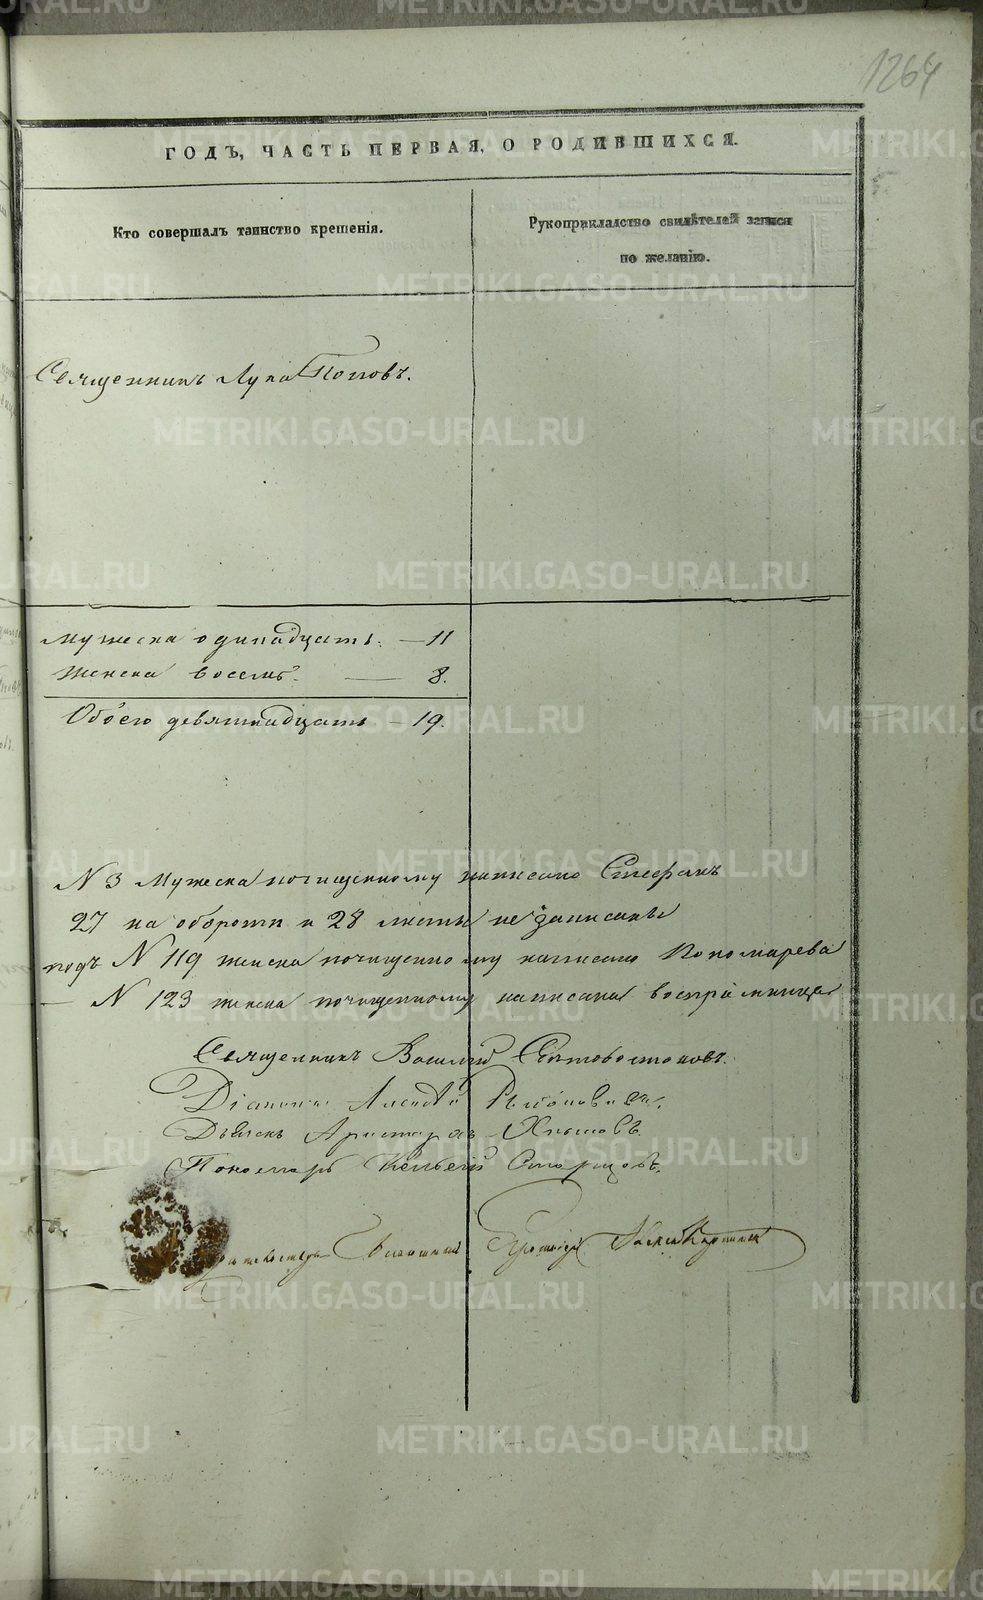 1264
ГОДЪ, ЧАСТЬ ПЕРВАЯ, О РОДИВШИХСЯ.
Кто совершалъ таинство крещенія.
Рукоприкладство свидѣтелей записи
по желанію.
Священникъ Лука Поповъ.
Мужеска одинадцать. — 11
Женска восемь. — 8.
Обоего девятнадцать — 19.
N 3 Мужеска почищенному написано Стефанъ
27 на оборотѣ и 28 листы не записаны
подъ N 119 женска почищенному написано Пономарева
— N 123 женска почищенному написана воспріемница
Священникъ Василій
Діаконъ Алексѣй
Дьячекъ Аристархъ
Пономарь Старцовъ.
METRIKI.GASO-URAL.RU